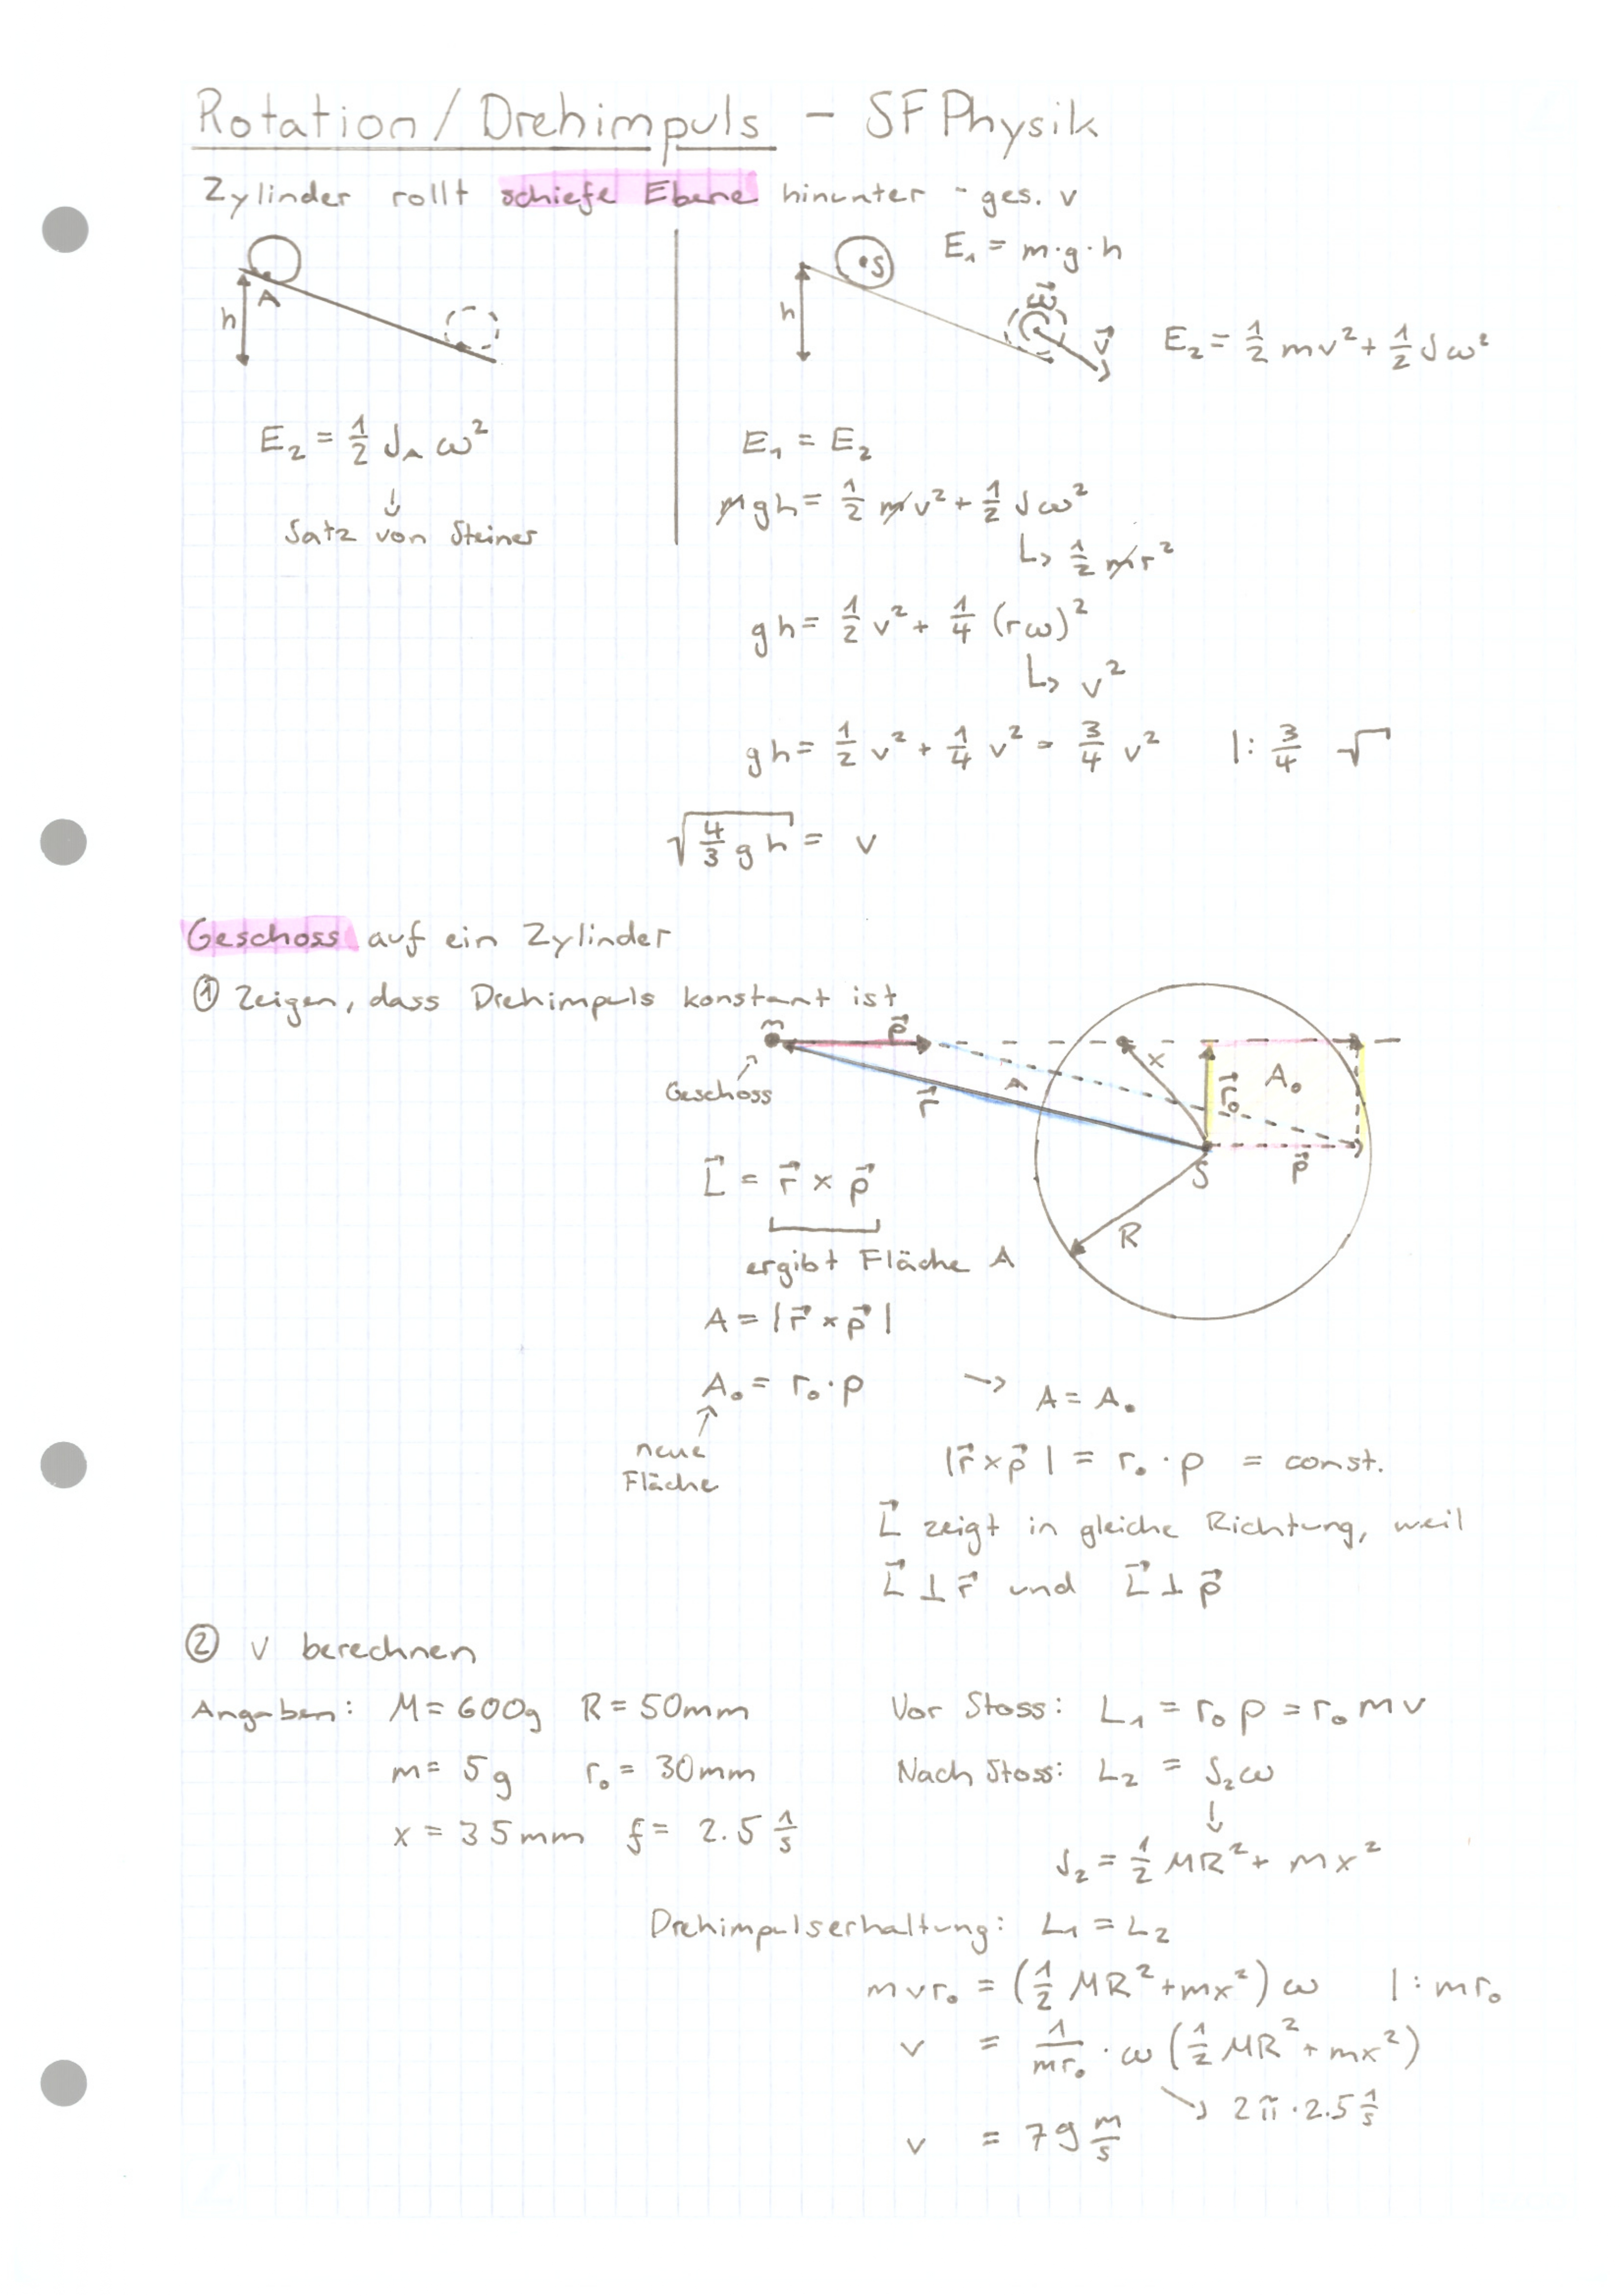 Rotation/Drehimpuls - SF Physik
Zylinder rollt schiefe Ebene hinunter - ges. v
h
A
E₂ = 1/2 J_A ω²
↓
Satz von Steiner
h
S
E₁ = m·g·h
ω⃗
v⃗
E₂ = 1/2 mv² + 1/2 Jω²
E₁ = E₂
mgh = 1/2 mv² + 1/2 Jω²
↳ 1/2 mr²
gh = 1/2 v² + 1/4 (rω)²
↳ v²
gh = 1/2 v² + 1/4 v² = 3/4 v² |: 3/4 √
√(4/3 gh) = v
Geschoss auf ein Zylinder
① Zeigen, dass Drehimpuls konstant ist
m
p⃗
Geschoss
r⃗
A
x
r⃗₀
A₀
S
p⃗
R
L⃗ = r⃗ × p⃗
ergibt Fläche A
A = |r⃗ × p⃗|
A₀ = r₀·p → A = A₀
neue
Fläche
|r⃗ × p⃗| = r₀ · p = const.
L⃗ zeigt in gleiche Richtung, weil
L⃗ ⊥ r⃗ und L⃗ ⊥ p⃗
② v berechnen
Angaben: M = 600g R = 50mm
m = 5g r₀ = 30mm
x = 35mm f = 2.5 1/s
Vor Stoss: L₁ = r₀ p = r₀ m v
Nach Stoss: L₂ = J₂ω
↓
J₂ = 1/2 MR² + mx²
Drehimpulserhaltung: L₁ = L₂
mvr₀ = (1/2 MR² + mx²) ω |: mr₀
v = 1/mr₀ · ω (1/2 MR² + mx²)
↘ 2π · 2.5 1/s
v = 79 m/s